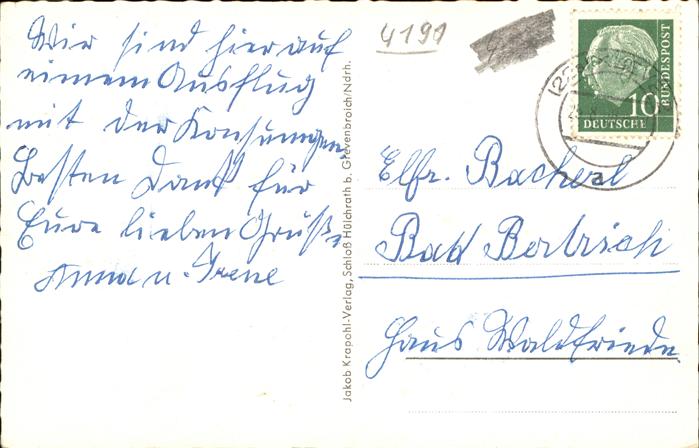 Wir sind hier auf
einem Ausflug
mit der Konsumgen.
Besten Dank für
Eure lieben Grüße,
Anna u. Irene
Jakob Krapohl-Verlag, Schloß Hülchrath b. Grevenbroich/Ndrh.
4191
10
DEUTSCHE
BUNDESPOST
(22
a
Elfr. Bacheral
Bad Bertrich
Haus Waldfriede